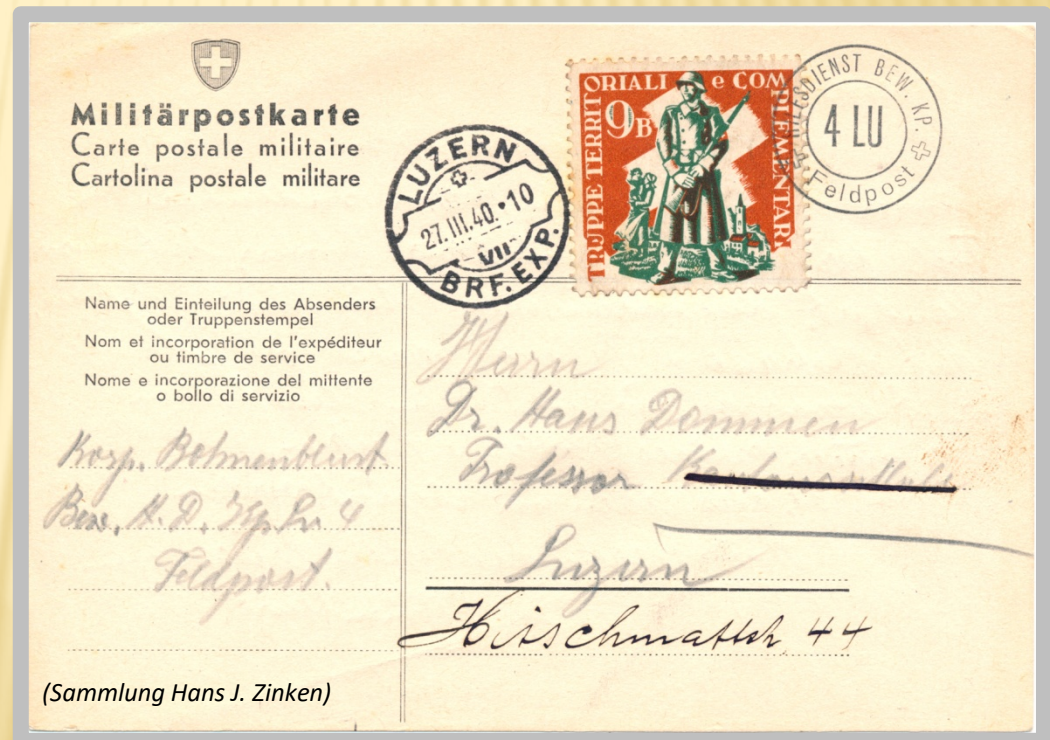 Militärpostkarte
Carte postale militaire
Cartolina postale militare
LUZERN
27.III.40.•10
VII
BRF. EXP.
TRUPPE TERRITORIALI e COMPLEMENTARI
9B
DIENST BEW. KP.
4 LU
Feldpost
Name und Einteilung des Absenders
oder Truppenstempel
Nom et incorporation de l'expéditeur
ou timbre de service
Nome e incorporazione del mittente
o bollo di servizio
Herrn
Dr. Hans Dommen
Professor
Luzern
Hirschmattstr. 44
Korp. Bohnenblust
Bew. H. D. Kp. Lu 4
Feldpost.
(Sammlung Hans J. Zinken)